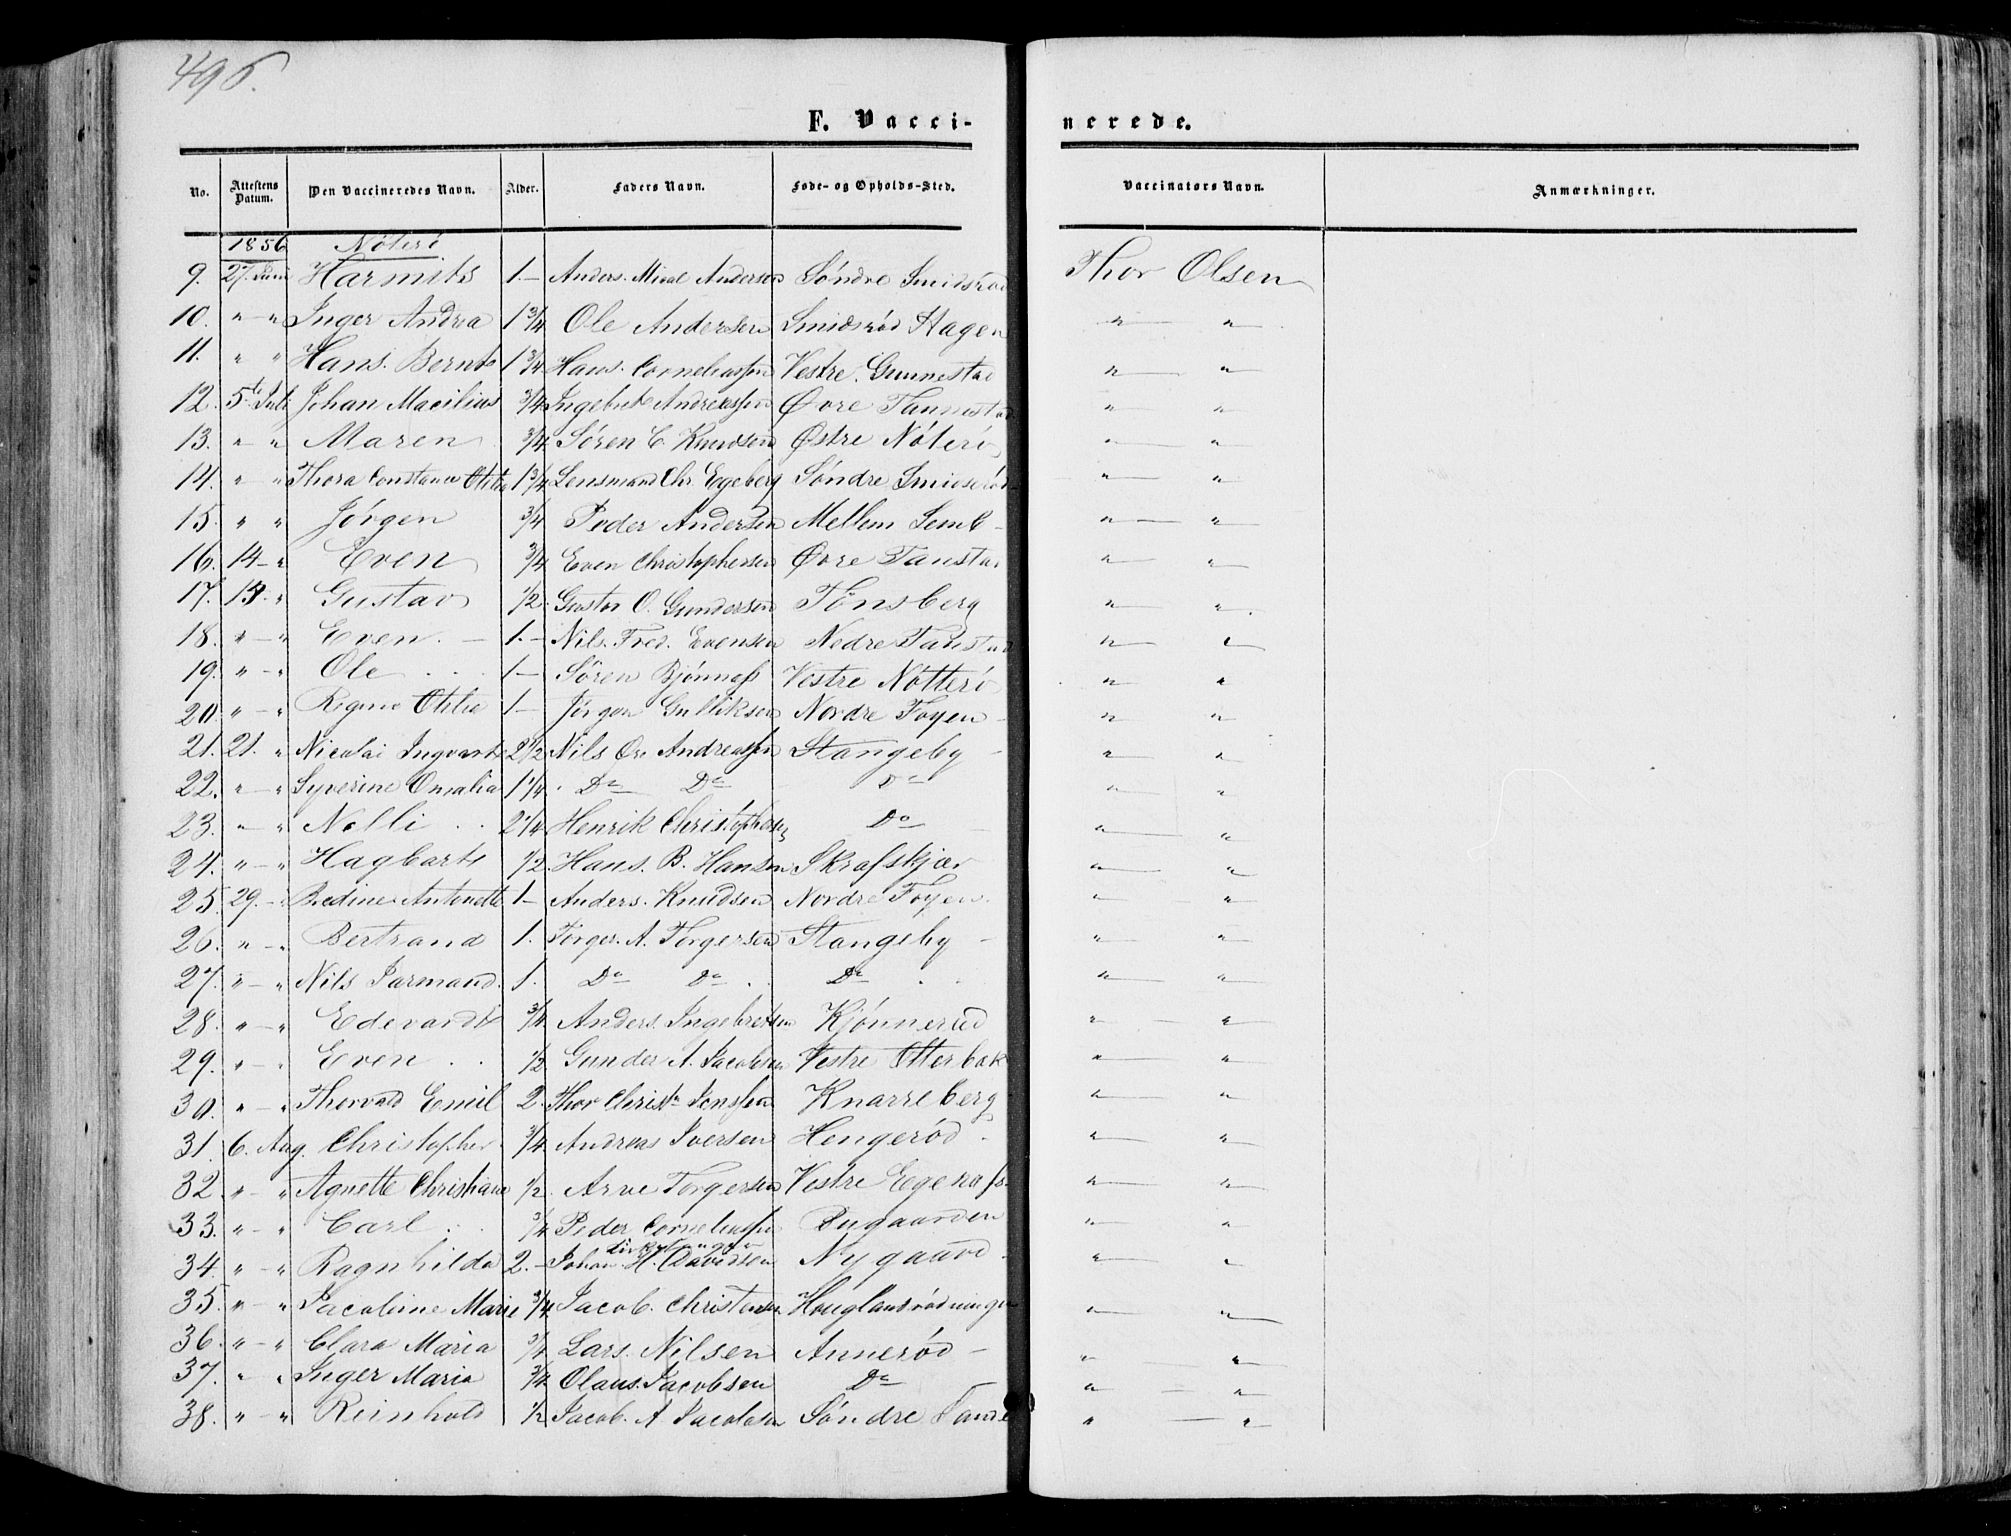 496.
F. Vacci-
nerede.
No. Attestens Datum. Den Vaccineredes Navn. Alder. Faders Navn. Føde- og Opholds-Sted. Vaccinators Navn. Anmærkninger.
1856 Nöterö
9. 27. Juni Harnits 1.- Anders. Mical Andersen Söndre Smidsröd Thor Olsen
10. " " Inger Andrea 1 3/4 Ole Andersen Smidsröd Hagen " "
11. " " Hans. Bernt 1 3/4 Hans. Corneliussen Vestre. Gunnestad " "
12. 5te Juli Johan Macilius 3/4 Ingebret Andreassen Øvre Tannestad " "
13. " " Maren 3/4 Sören C. Knudsen Østre Nöterö " "
14. " " Thora Constance Otilia 1 3/4 Lensmand Chr. Egeberg Söndre Smidsröd " "
15. " " Jörgen 3/4 Peder Andersen Mellem Semb - " "
16. 14 - " Even 3/4 Even Christophersen Øvre Tanstad " "
17. " Gustav 1/2 Gustav O. Gundersen Tönsberg " "
18. " - " Even. - 1.- Nils. Fred. Evensen Nedre Tanstad " "
19. " - " Ole 1- Sören Bjönness Vestre Nötterö " "
20. " - " Regine Otilia 1- Jörgen Gulliksen Nordre Foyen - " "
21. 21. " Nicolai Ingvart 2 1/2 Nils Chr. Andreassen Stangeby - " "
22. " - " Syverine Omalia 1 1/4 Do Do Do " "
23. " - " Nelli 2 1/4 Henrik Christophersen Do " "
24. " - " Hagbart 1/2 Hans. B. Hansen Skrafskjær " "
25. 29. - " Bedine Antonette 1- Anders. Knudsen Nordre Foyen. " "
26. " - " Bertrand 1. Torger. A. Torgersen Stangeby - " "
27. " - " Nils Jarmand. 1. Do Do Do " "
28. " - " Edevardt 3/4 Anders. Ingebretsen Kjönnerud " "
29. " - " Even 1/2 Gunder A. Jacobsen Vestre Otterbæk " "
30. " - " Thorvald Emil 2. Thor Christn Jenssen Knarreberg " "
31. 6. Aug. Christopher 3/4 Andreas Iversen Hengeröd - " "
32. " - " Agnette Christiane 1/2 Arve Torgersen Vestre Egenæss. " "
33. " - " Carl 3/4 Peder Corneliussen Bugaarden " "
34. " - " Ragnhilda 2.- Johan H. Davidsen Nygaard - " "
35. " - " Jacobine Marie 3/4 Jacob. Christensen Houglandrödningen " "
36. " - " Clara Maria 3/4 Lars. Nilsen Anneröd - " "
37. " " Inger Maria 3/4 Olaus. Jacobsen Do " "
38. " - " Reinhold 1/2 Jacob. A Jacobsen Söndre Sande " "